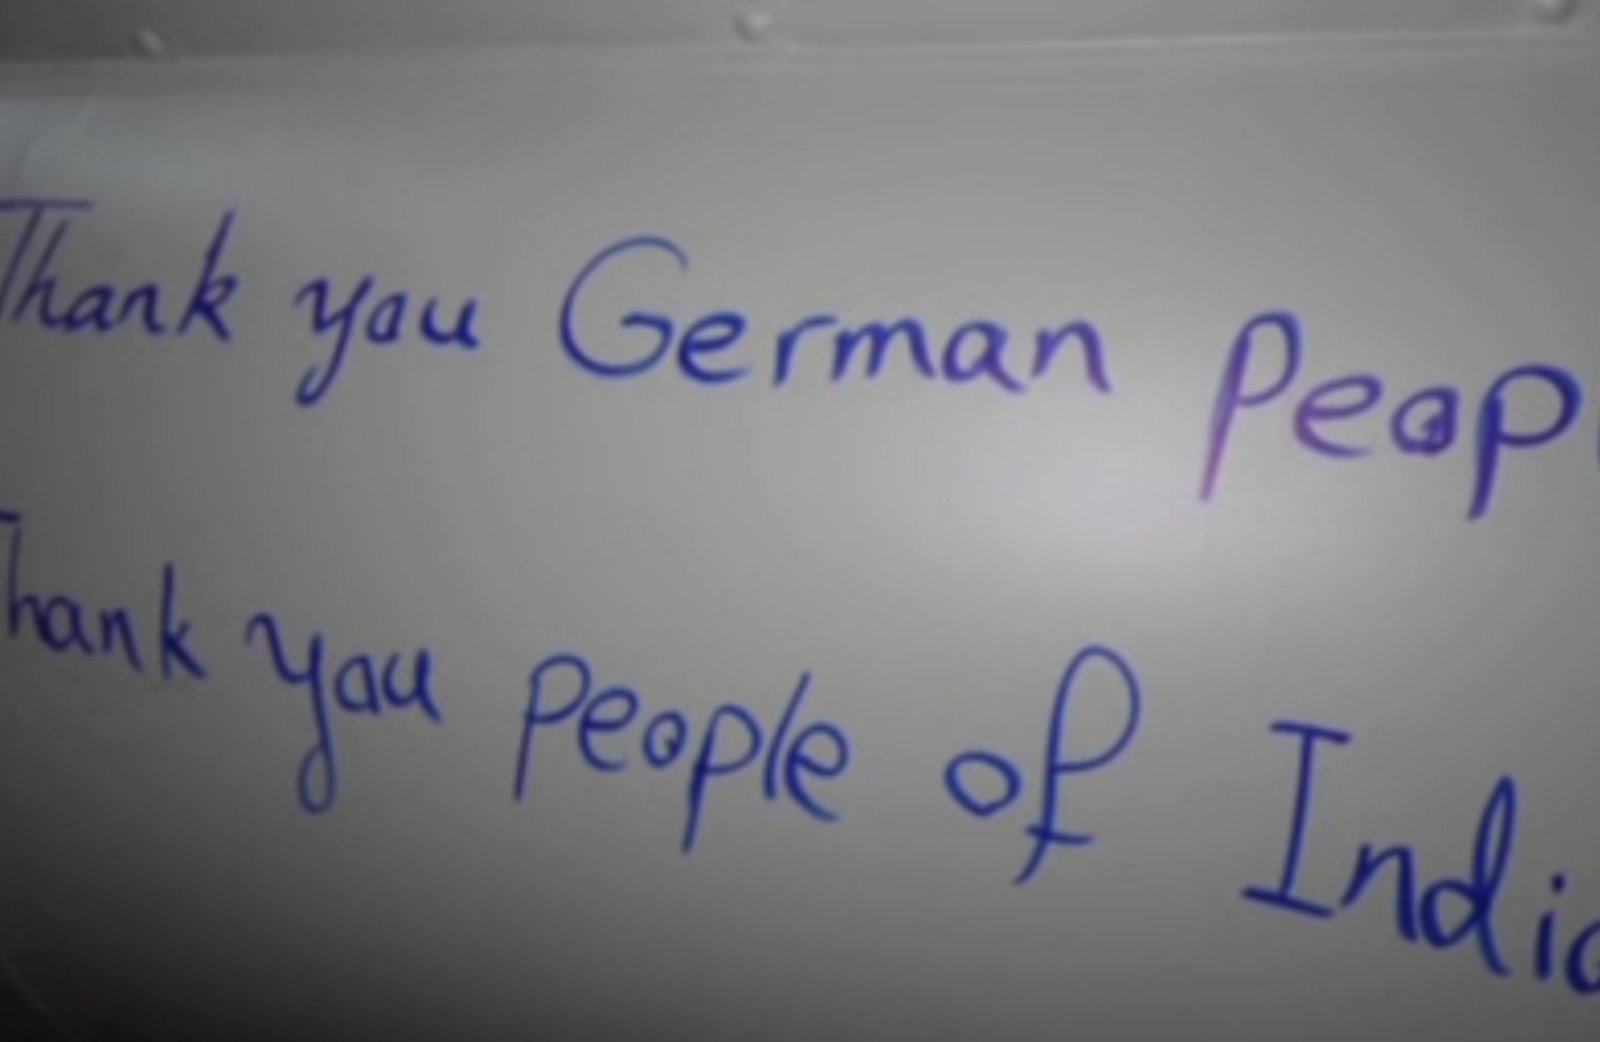 Thank you German Peop
Thank you people of India